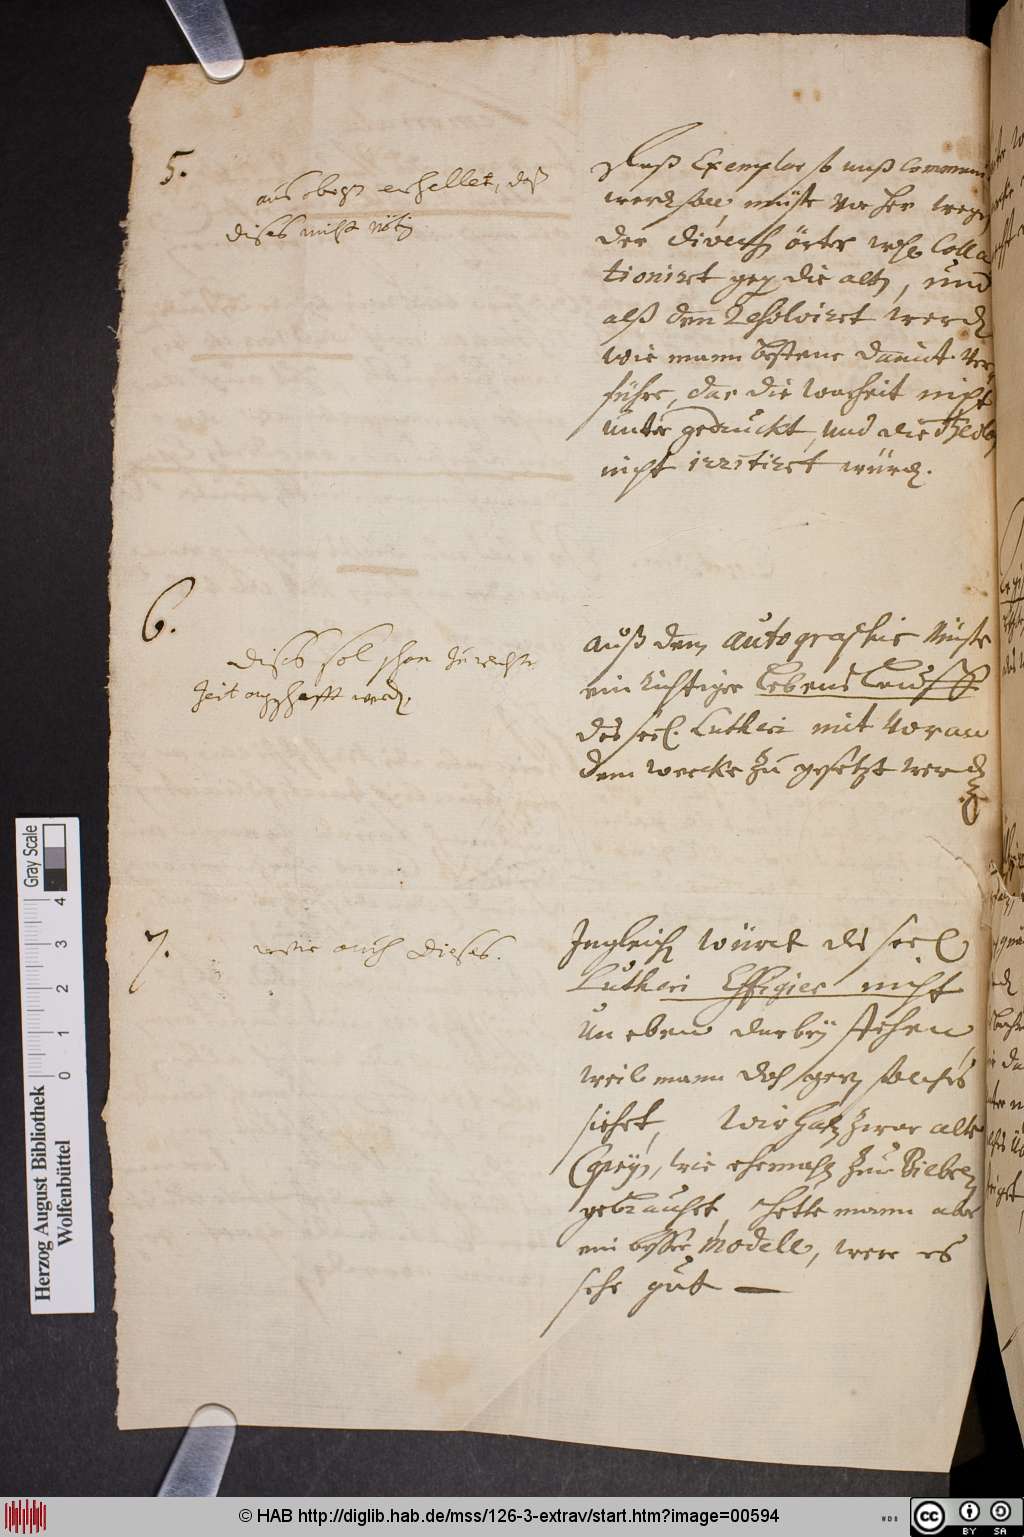 5.
aus obgen erhellet, daß
dises nicht nötig
Daß Exemplar so muß Communi
werden soll müste vor her wegen
der diversen örter wohl Colla
tioniret gegen die alten, und
alß den Resolviret werden
wie mann bestens damit ver
führe, das die warheit nicht
unter gedruckt, und die Theolog
nicht irritiret würden.
6.
dises sol schon zu rechter
Zeit angeschafft werden.
auß dem autographis müste
ein richtiger Lebens Lauff
des seel. Lutheri mit voran
dem wercke zu gesetzt werden
7.
wie auch dieses.
Ingleichen würde des seel
Lutheri Effigies nicht
un eben darbey stehen,
weil mann doch gern solches
siehet, Wir haben zwar alte
Copeyen, wie ehemahls zur Biebel
gebrauchet, hette mann aber
ein besser Modell, were es
sehr gut —
Gray Scale
4 3 2 1 0
Herzog August Bibliothek
Wolfenbüttel
© HAB http://diglib.hab.de/mss/126-3-extrav/start.htm?image=00594
cc BY SA